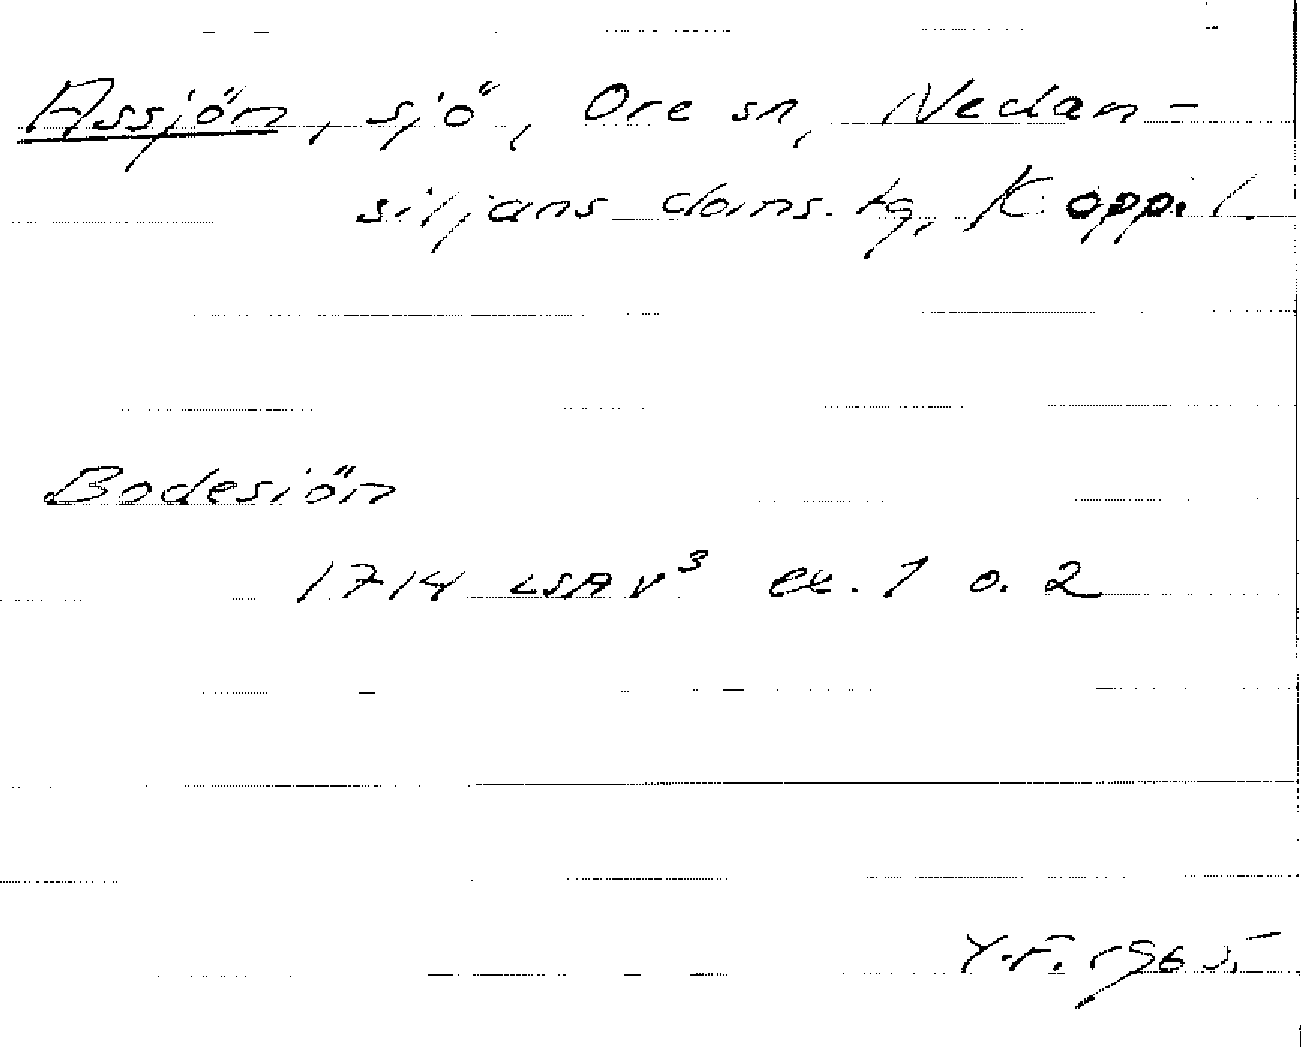 Assjön, sjö, Ore sn, Nedan-
siljans doms. tg, Kopp. l.
Bodesiön
1714 LSA V³ ex. 1 o. 2
Y.F. 1965